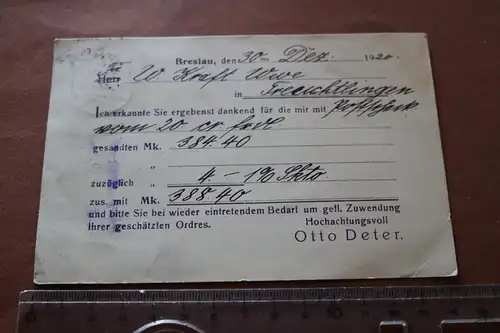 Breslau, den 30ten Dez. 1920.
Herr W. Kraft Wwe
in Treuchtlingen
Ich erkannte Sie ergebenst dankend für die mir mit Postscheck
vom 20 cr. frdl.
gesandten Mk. 384.40
zuzüglich " 4.- 1% Skto.
zus. mit Mk. 388.40
und bitte Sie bei wieder eintretendem Bedarf um gefl. Zuwendung
Ihrer geschätzten Ordres.
Hochachtungsvoll
Otto Deter.